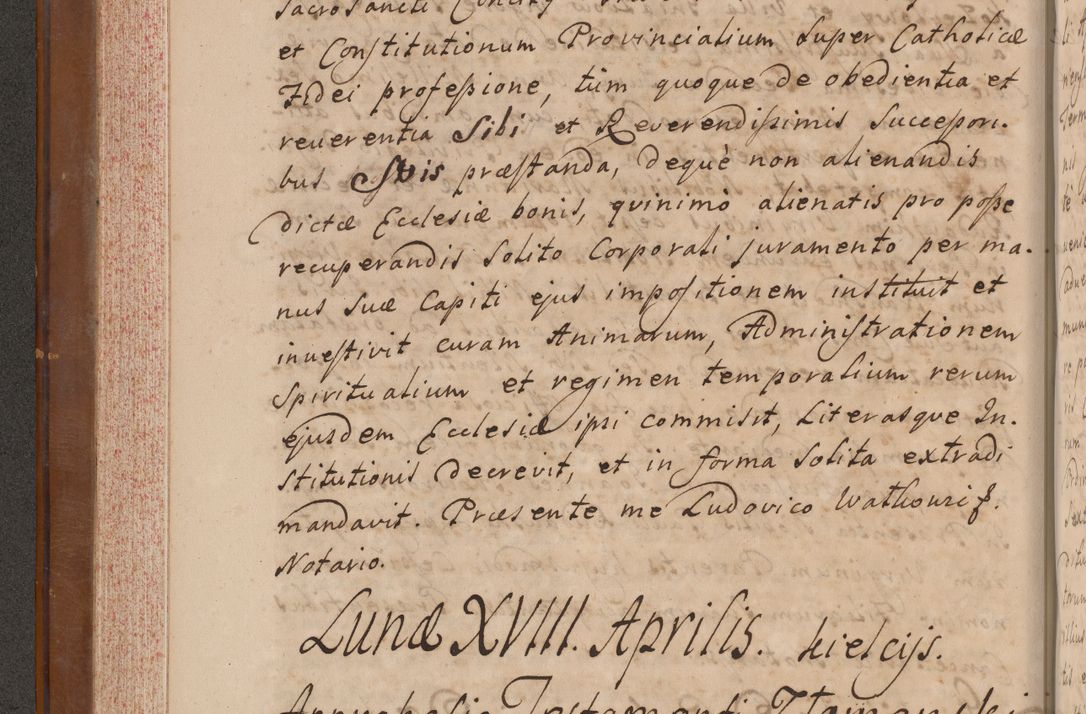 SacroSancti
et Constitutionum Provincialium super Catholicæ
Fidei professione, tùm quoque de obedientia et
reuerentia Sibi et Reverendissimis Successori.
bus Suis præstanda, deque non alienandis
dictæ Ecclesiæ bonis, qvinimò alienatis pro posse
recuperandis solito Corporali juramento per ma.
nus suæ Capiti ejus impositionem instituit et
inuestivit curam Animarum, Administrationem
Spiritualium et regimen temporalium rerum
ejusdem Ecclesiæ ipsi commisit, Literasqve In.
stitutionis decrevit, et in forma solita extradi
mandavit. Præsente me Ludovico
Notario.
Lunæ XVIII. Aprilis. Kielcijs.
Testamenti